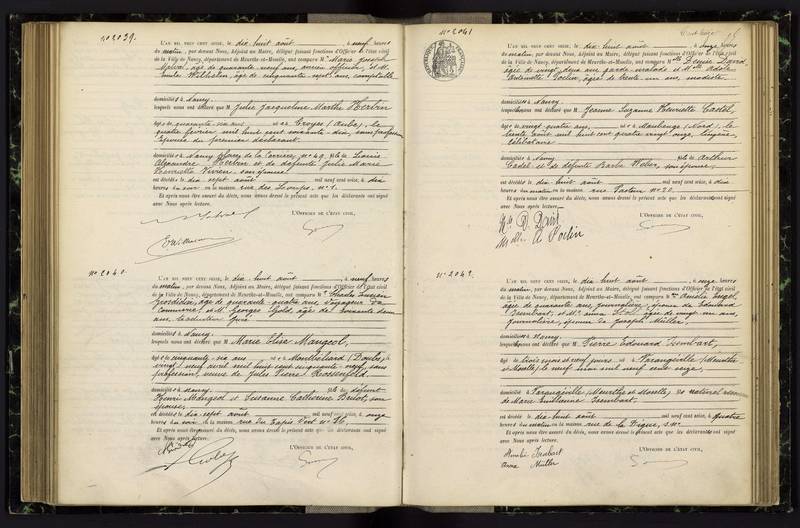 N° 2039.
L'AN MIL NEUF CENT SEIZE, le dix huit août, à neuf heures
du matin, par devant Nous, Adjoint au Maire, délégué faisant fonctions d'Officier de l'état civil
de la Ville de Nancy, département de Meurthe-et-Moselle, ont comparu M. Marie Joseph
âgé de quarante neuf ans, ancien officier, et M.
Emile âgé de cinquante sept ans, comptable
domiciliés à Nancy,
lesquels nous ont déclaré que M. Julie Jacqueline Marthe Herbin
âgée de quarante six ans, née à Troyes (Aube), le
quatre février mil huit cent soixante dix, sans profession,
épouse du premier déclarant.
domiciliée à Nancy place de la Carrière n° 49, fille de Louis
Alexandre Herbin et de défunte Julie Marie
Henriette Vivien, son épouse
est décédée le dix sept août mil neuf cent seize, à dix
heures du soir en la maison rue des n° 1.
Et après nous être assuré du décès, nous avons dressé le présent acte que les déclarants ont signé
avec Nous après lecture.
L'OFFICIER DE L'ÉTAT CIVIL,
N° 2040.
L'AN MIL NEUF CENT SEIZE, le dix huit août, à neuf heures
du matin, par devant Nous, Adjoint au Maire, délégué faisant fonctions d'Officier de l'état civil
de la Ville de Nancy, département de Meurthe-et-Moselle, ont comparu M. Charles Lucien
âgé de quarante quatre ans, voyageur de
commerce, et M. Georges âgé de soixante deux
ans,
domiciliés à Nancy,
lesquels nous ont déclaré que M. Marie Elise Mangeol,
âgée de cinquante six ans, née à Montbéliard (Doubs), le
vingt neuf avril mil huit cent cinquante neuf, sans
profession, veuve de Jules Pierre Rossenfeld,
domiciliée à Nancy, fille de défunt
Henri Mangeol et Susanne Catherine son
épouse,
est décédée le dix sept août mil neuf cent seize, à onze
heures du soir, en la maison rue du Tapis Vert n° 16,
Et après nous être assuré du décès, nous avons dressé le présent acte que les déclarants ont signé
avec Nous après lecture.
L'OFFICIER DE L'ÉTAT CIVIL,
N° 2041
L'AN MIL NEUF CENT SEIZE, le dix huit août, à onze heures
du matin, par devant Nous, Adjoint au Maire, délégué faisant fonctions d'Officier de l'état civil
de la Ville de Nancy, département de Meurthe-et-Moselle, ont comparu Mlle Denise David,
âgée de vingt deux ans garde-malade et Mlle Adèle
Antoinette Poclin, âgée de trente un ans, modiste
domiciliées à Nancy,
lesquels nous ont déclaré que M. Jeanne Suzanne Henriette Castel,
âgée de vingt quatre ans, née à Maubeuge (Nord), le
trente août mil huit cent quatre vingt onze, lingère,
célibataire
domiciliée à Nancy fille de Arthur
Castel et de défunte Barbe Weber, son épouse,
est décédée le dix huit août mil neuf cent seize, à deux
heures du matin en la maison rue Pasteur n° 20.
Et après nous être assuré du décès, nous avons dressé le présent acte que les déclarants ont signé
avec Nous après lecture.
L'OFFICIER DE L'ÉTAT CIVIL,
Mlle D. David
Mlle A. Poclin
N° 2042.
L'AN MIL NEUF CENT SEIZE, le dix huit août, à onze heures
du matin, par devant Nous, Adjoint au Maire, délégué faisant fonctions d'Officier de l'état civil
de la Ville de Nancy, département de Meurthe-et-Moselle, ont comparu Mme Amélie
âgée de quarante ans, journalière, épouse de Edouard
Isembart, et Mme Anna âgée de vingt un ans,
journalière, épouse de Joseph Müller,
domiciliées à Nancy,
lesquels nous ont déclaré que Pierre Edouard Isembart,
âgé de trois mois et neuf jours, né à Varangéville (Meurthe
et Moselle), le neuf mai mil neuf cent seize,
domicilié à Varangéville (Meurthe et Moselle), fils naturel
de Marie Guillemine Isembart.
est décédé le dix huit août mil neuf cent seize, à quatre
heures du matin en la maison rue de la Digue, s.n°.
Et après nous être assuré du décès, nous avons dressé le présent acte que les déclarants ont signé
avec Nous après lecture.
L'OFFICIER DE L'ÉTAT CIVIL,
Amélie Isembart
Anna Müller